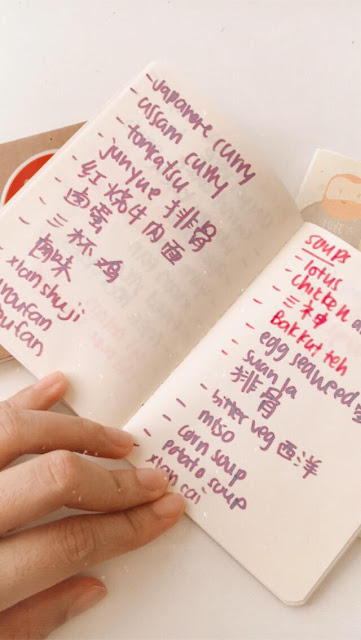 - Japanese curry
- assam curry
- tonkatsu
- junyue 排骨
- 红烧牛肉面
- 卤蛋
- 三杯鸡
- 卤味
- xian shu ji
soups
- lotus
- chicken
- 三神
Bak kut teh
- egg seaweed
- suan la
- 排骨
- bitter veg 西洋
- miso
- corn soup
- potato soup
xian cai